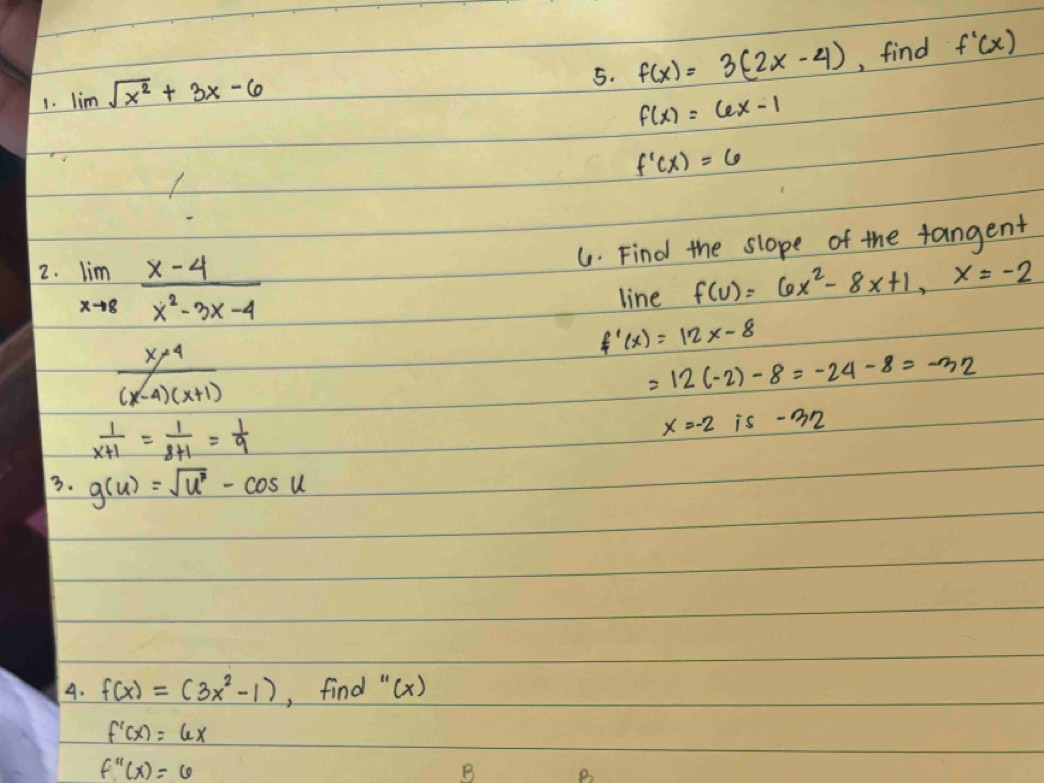 1. lim √x² + 3x - 6
2. lim x - 4
x→8 x² - 3x - 4
x - 4
(x-4)(x+1)
1/x+1 = 1/8+1 = 1/9
3. g(u) = √u³ - cos u
4. f(x) = (3x² - 1), find "(x)
f'(x) = 6x
f"(x) = 6
B B
5. f(x) = 3(2x - 4), find f'(x)
f(x) = 6x - 1
f'(x) = 6
6. Find the slope of the tangent
line f(u) = 6x² - 8x + 1, x = -2
f'(x) = 12x - 8
= 12(-2) - 8 = -24 - 8 = -32
x = -2 is -32